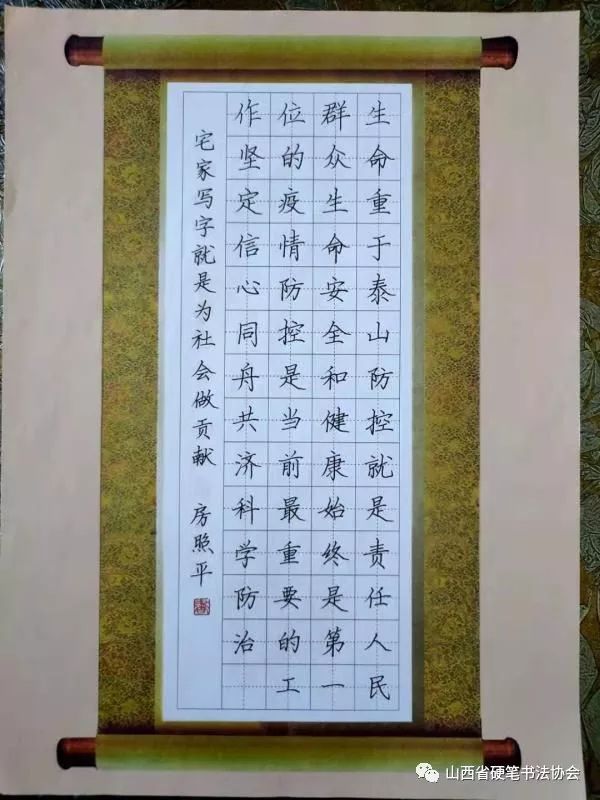 生命重于泰山防控就是责任人民
群众生命安全和健康始终是第一
位的疫情防控是当前最重要的工
作坚定信心同舟共济科学防治
宅家写字就是为社会做贡献 房照平
山西省硬笔书法协会